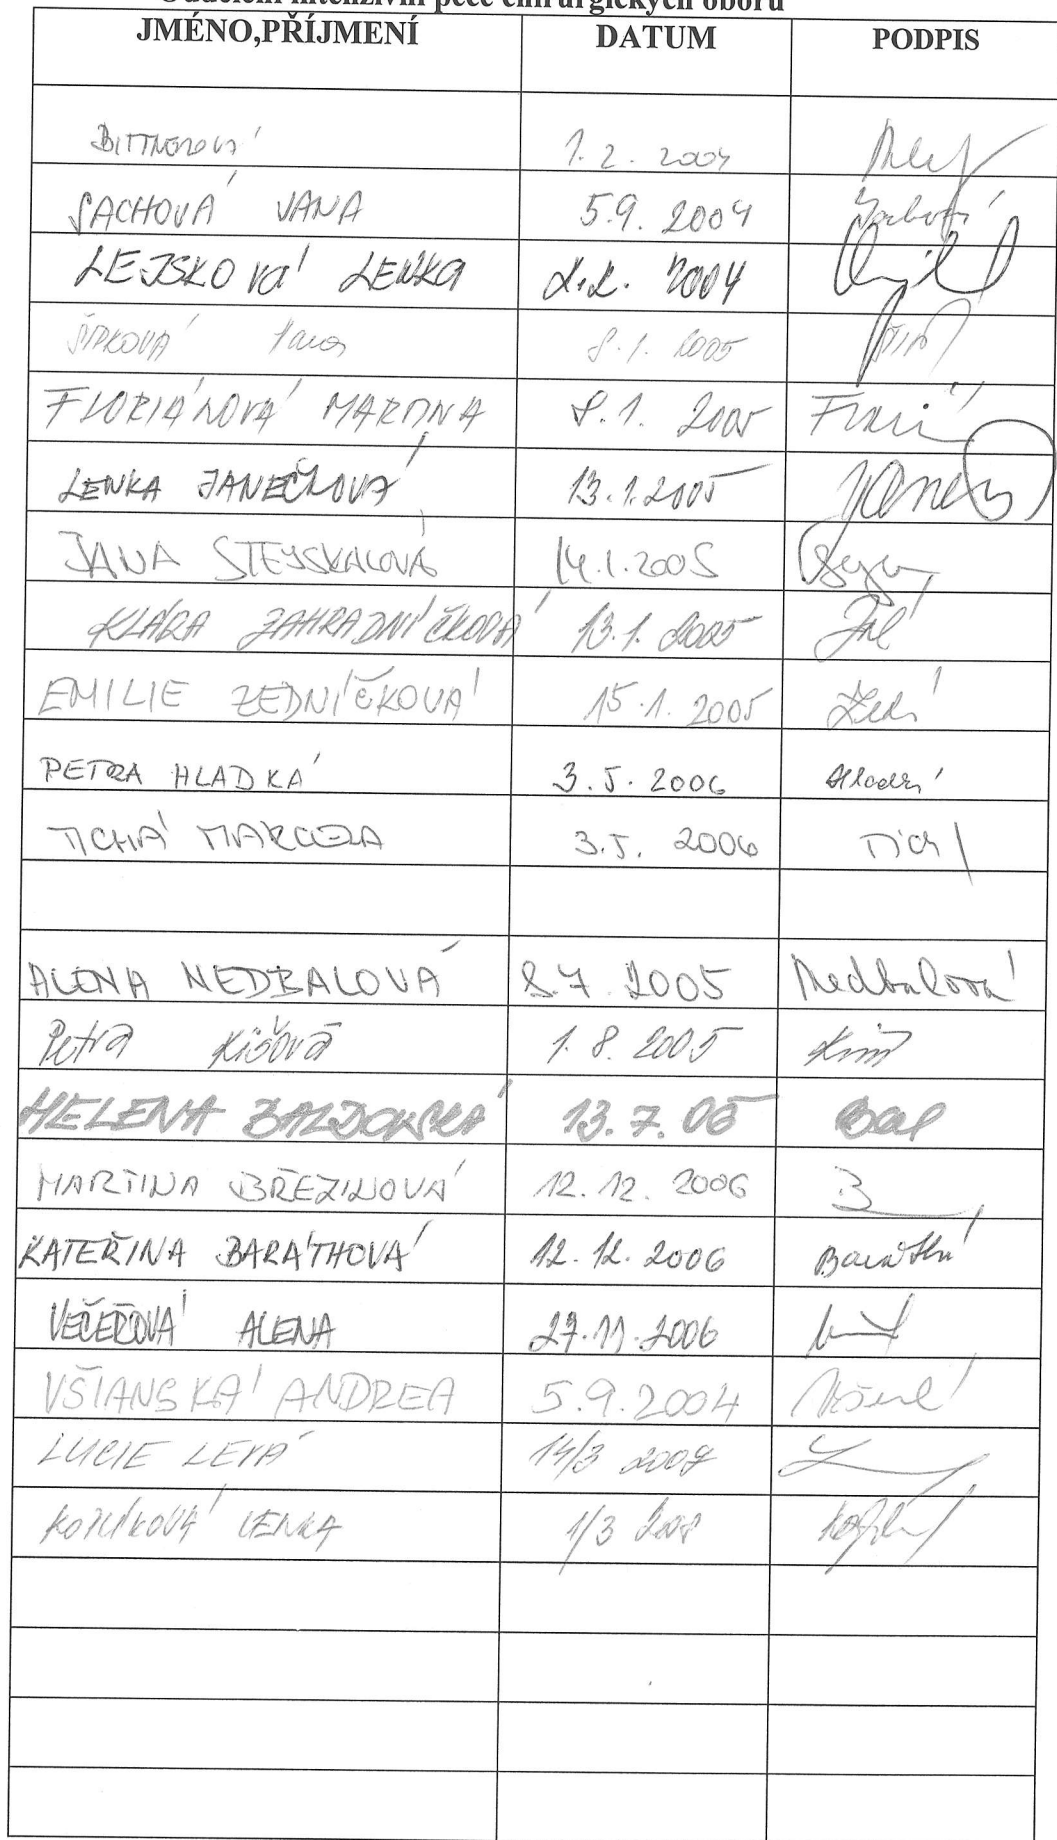 Oddělení intenzivní péče chirurgických oborů
JMÉNO,PŘÍJMENÍ DATUM PODPIS
BITTNEROVÁ 1. 2. 2004
ŠACHOVÁ JANA 5.9. 2004
LEJSKOVÁ LENKA 2.2. 2004
ŠÍPKOVÁ Jana 8.1. 2005
FLORIÁNOVÁ MARTINA 8.1. 2005
LENKA JANEČKOVÁ 13.1.2005
JANA STEJSKALOVÁ 14.1.2005
KLÁRA ZAHRADNÍČKOVÁ 13.1. 2005
EMILIE ZEDNÍČKOVÁ 15.1. 2005
PETRA HLADKÁ 3.5.2006
TICHÁ MARCELA 3.5. 2006
ALENA NEDBALOVÁ 8.7 2005 Nedbalová
Petra Kišová 1. 8. 2005
HELENA 13.7.05 Bal
MARTINA BŘEZINOVÁ 12.12. 2006 B
KATEŘINA BARÁTHOVÁ 12.12.2006
VEČEŘOVÁ ALENA 27.11.2006
VŠIANSKÁ ANDREA 5.9.2004
LUCIE LEVÁ 14/3
LENKA 1/3 2008